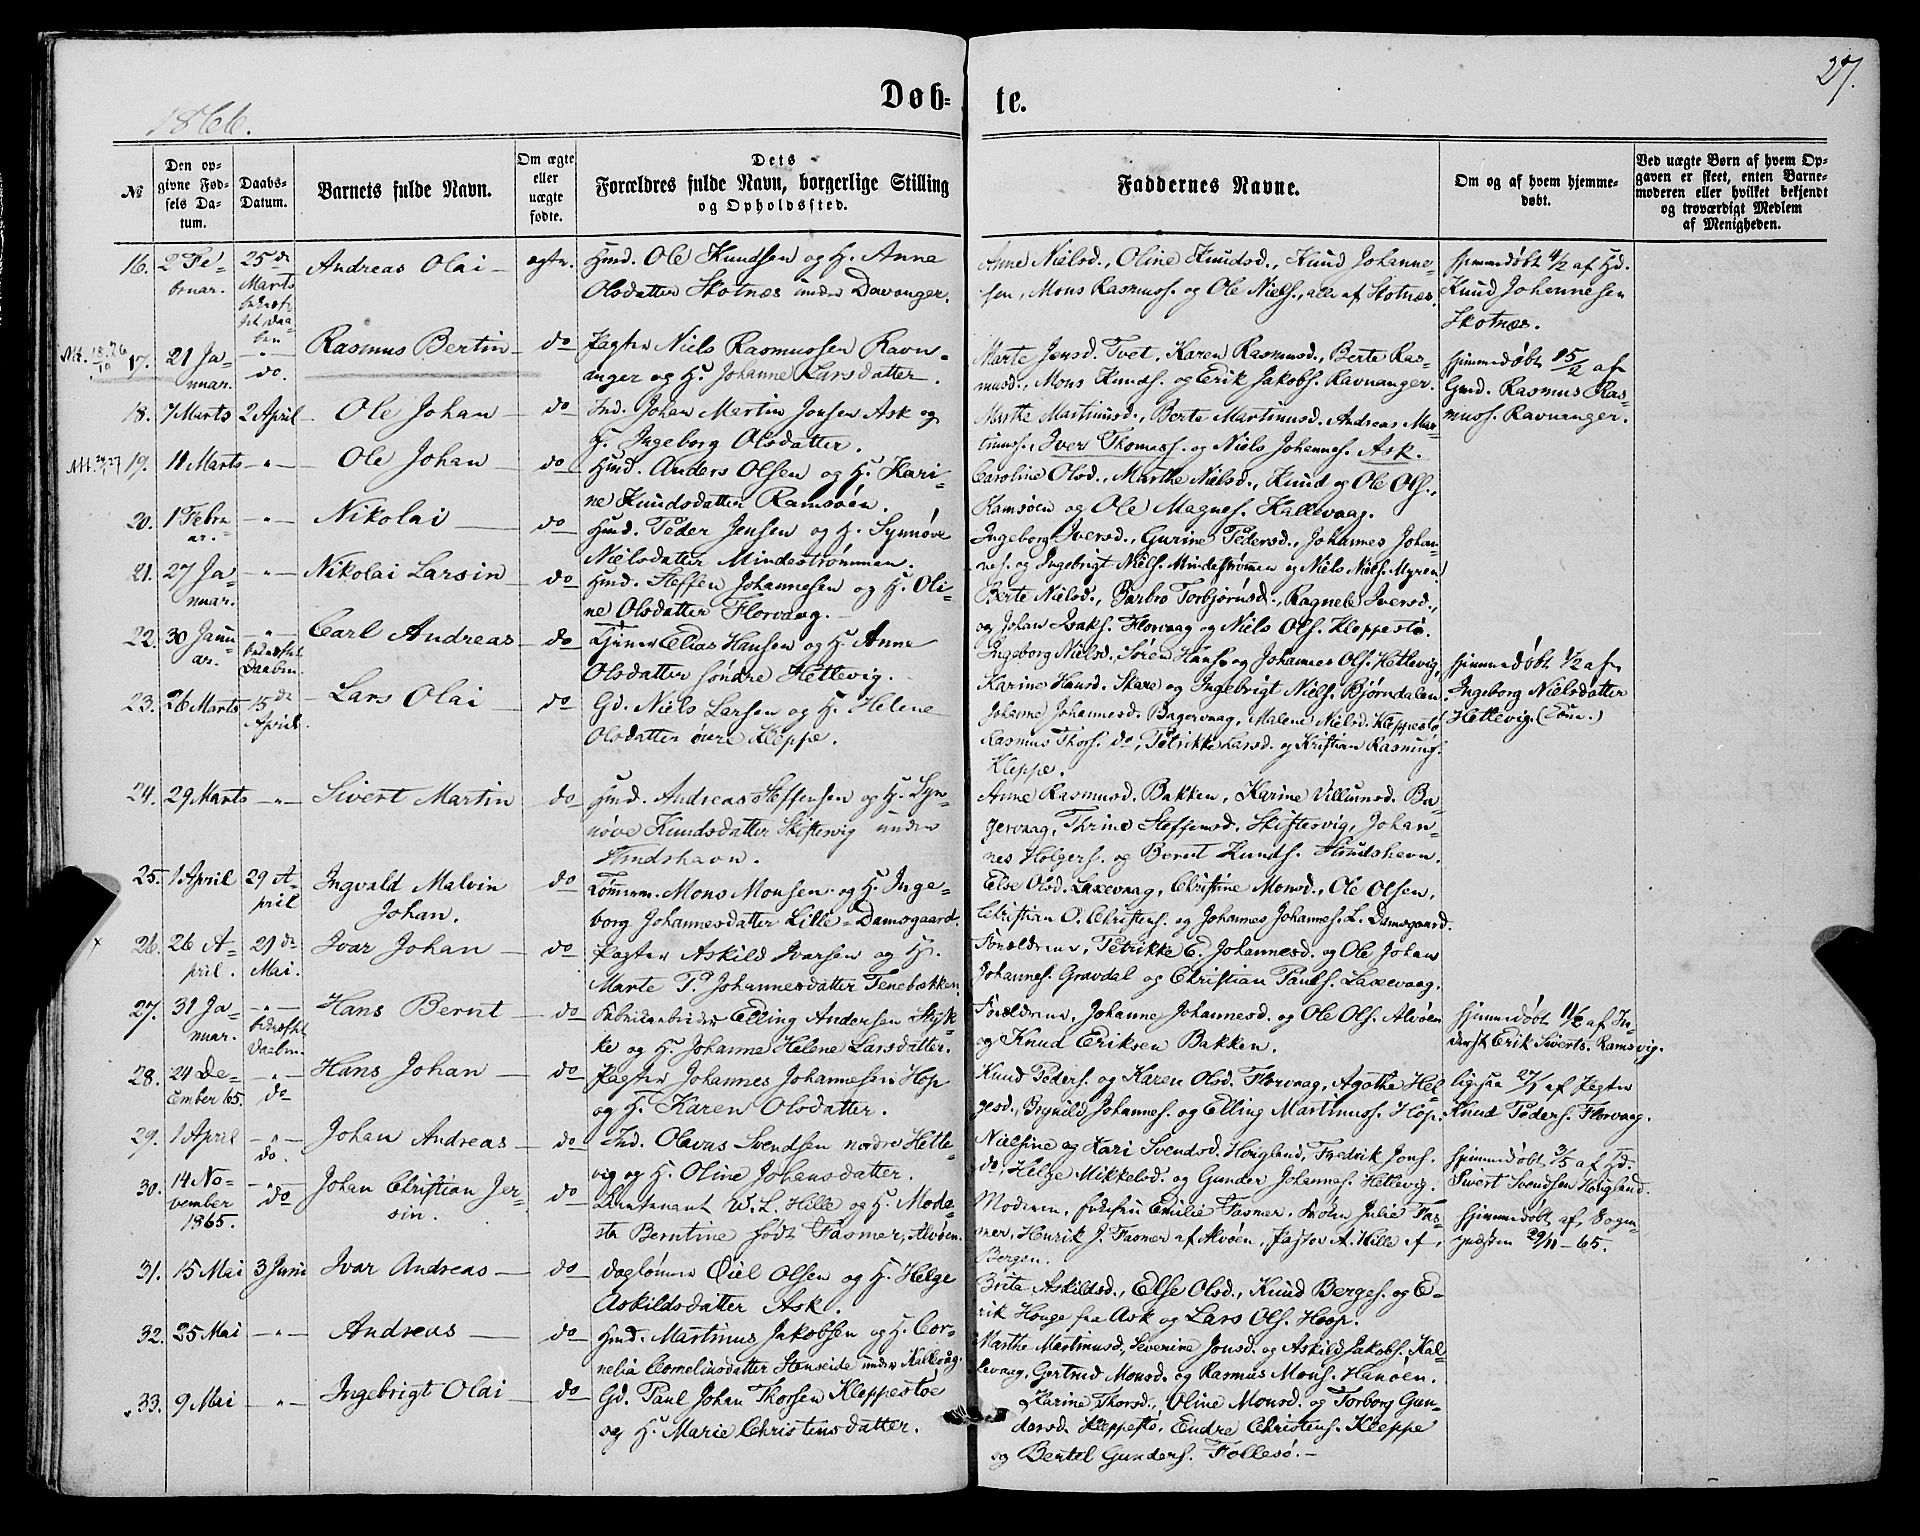 27.
Døb-te.
1866.
№
Den op-
givne Fød-
sels Da-
tum.
Daabs-
Datum.
Barnets fulde Navn.
Om ægte
eller
uægte
fødte.
Dets
Forældres fulde Navn, borgerlige Stilling
og Opholdssted.
Faddernes Navne.
Om og af hvem hjemme-
døbt.
Ved uægte Børn af hvem Op-
gaven er skeet, enten Barne-
moderen eller hvilket bekjendt
og troværdigt Medlem
af Menigheden.
16. 2 Fe-
bruar.
25 de
Marts
bekræf-
tet Daa-
ben
Andreas Olai
ægte.
Hmd. Ole Knudsen og H. Anne
Olsdatter Skotnæs under Davanger.
Anne Nielsd., Oline Knudsd., Knud Johanne-
sen, Mons Rasmuss. og Ole Niels., alle af Skotnæs.
hjemmedøbt 4/2 af Hd.
Knud Johannesen
Skotnæs.
17. 21 Ja-
nuar.
-"-
do.
Rasmus Bertin
do
Jægter Niels Rasmussen Ravn-
anger og H. Johanne Larsdatter.
Marte Jensd. Tvet, Karen Rasmusd., Berte Ras-
musd., Mons Knuds. og Erik Jakobs. Ravnanger.
hjemmedøbt 15/2 af
Gmd. Rasmus Ras-
muss. Ravnanger.
18. 7 Marts
2 April
Ole Johan
do
Ind. Johan Martin Jonsen Ask og
H. Ingeborg Olsdatter.
Marthe Martinusd., Berte Martinusd. Andreas Mar-
tinuss., Iver Thomass. og Niels Johannes. Ask.
19. 11 Marts
-"-
Ole Johan
do
Hmd. Anders Olsen og H. Kari-
ne Knudsdatter Ramsøen.
Caroline Olsd., Marthe Nielsd., Knud og Ole Ols.,
Ramsøen og Ole Magnes. Kallevaag.
20. 1 Febru
ar.
-"-
Nikolai
do
Hmd. Peder Jensen og H. Synnøve
Nielsdatter Mindestrømmen.
Ingeborg Iversd., Gurine Pedersd., Johannes Johan-
nes. og Ingebrigt Niels. Mindestrømen og Niels Niels. Myren.
21. 27 Ja-
nuar.
-"-
Nikolai Larsin
do
Hmd. Steffen Johannesen og H. Oli-
ne Olsdatter Florvaag.
Berte Nielsd., Barbro Torbjørnsd., Ragnele Iversd.,
og Johan Isaks. Florvaag og Niels Ols. Kleppestø.
22. 30 Janu-
ar.
-"-
bekræftet
Daaben
Carl Andreas
do
Tjener Elias Hansen og H. Anne
Olsdatter søndre Hetlevig.
Ingeborg Nielsd., Søren Hans. og Johannes Ols. Hetlevig,
Karine Hansd. Skare og Ingebrigt Niels. Bjørndalen.
hjemmedøbt 1/2 af
Ingeborg Nielsdatter
Hetlevig.
23. 26 Marts
15 de
April
Lars Olai
do
Gd. Niels Larsen og H. Helene
Olsdatter øvre Kleppe.
Johanne Johannesd. Bagervaag, Malene Nielsd. Kleppestø
Rasmus Thors. do, Petrikke Larsd. og Kristian Rasmuss.
Kleppe.
24. 29 Marts
-"-
Sivert Martin
do
Hmd. Andreas Steffensen og H. Syn-
nøve Knudsdatter Skiftesvig under
Strudshavn.
Anne Rasmusd. Bakken, Karine Villumsd. Ba-
gervaag, Thrine Steffensd. Skiftesvig, Johan-
nes Holgers. og Bernt Knuds. Strudshavn.
25. 1 April
29 A-
pril
Ingvald Malvin
Johan.
do
Tømmerm. Mons Monsen og H. Inge-
borg Johannesdatter Lille-Damsgaard.
Else Olsd. Laxevaag, Christine Monsd., Ole Olsen,
Christian O. Christens. og Johannes Johannes. L. Damsgaard.
26. 26 A-
pril.
21 de
Mai.
Ivar Johan
do
Jægter Askild Ivarsen og H.
Marte P. Johannesdatter Tenebækken.
Forældrene, Petrikke E. Johannesd. og Ole Johan
Johannes. Gravdal og Christian Pauls. Laxevaag.
27. 31 Ja-
nuar.
-"-
bekræftet
Daaben
Hans Bernt
do
Fabrikarbeider Elling Andersen Skjæk-
ke og H. Johanne Helene Larsdatter.
Forældrene, Johanne Johannesd. og Ole Ols. Alvøen
og Knud Eriksen Bakken.
hjemmedøbt 11/2 af In-
derst Erik Siverts. Ramsvig.
28. 24 De-
cember 65.
-"-
do
Hans Johan
do
Jægter Johannes Johannesen Hop
og H. Karen Olsdatter.
Knud Peders. og Karen Olsd. Florvaag, Agathe Hel-
gesd., Brynild Johannes. og Elling Martinuss. Hop.
ligesaa 27/1 af Jægter
Knud Peders. Florvaag.
29. 1 April
-"-
do.
Johan Andreas
do
Ind. Olavus Svendsen nordre Hetle-
vig og H. Oline Johansdatter.
Nielsine og Kari Svendsd. Hougland, Fredrik Jons.
do, Helge Mikkelsd. og Gunder Johannes. Hetlevig.
hjemmedøbt 3/5 af Hd.
Sivert Svendsen Hougland.
30. 14 No-
vember
1865.
-"-
do
Johan Christian Jer-
sin.
do
Lieutenant W. L. Hille og H. Mode-
sta Berntine født Fasmer, Alvøen.
Moderen, Emilie Fasmer, Frøken Julie Fas-
mer, Henrik J. Fasmer af Alvøen, Pastor A. Hille af
Bergen.
hjemmedøbt af Sogne-
præsten 29/11-65.
31. 15 Mai
3 Juni
Ivar Andreas
do
Daglønner Oiel Olsen og H. Helge
Askildsdatter Ask.
Brita Askildsd., Else Olsd., Knud Berges. og E-
rik Houge fra Ask og Lars Ols. Hop.
32. 25 Mai
-"-
Andreas
do
Hmd. Martinus Jakobsen og H. Cor-
nelia Cornelius­datter Stenseide under Kallevåg.
Marthe Martinusd., Severine Jonsd. og Askild Jakobs. Kal-
levaag, Gertrud Monsd. og Rasmus Mons. Hanøen.
33. 9 Mai
-"-
Ingebrigt Olai
do
Gd. Paul Johan Thorsen Kleppestøe
og H. Marie Christensdatter.
Karine Thorsd., Oline Monsd. og Torborg Gun-
dersd. Kleppestø, Endre Christens. Kleppe
og Bertel Gunders. Follesø.